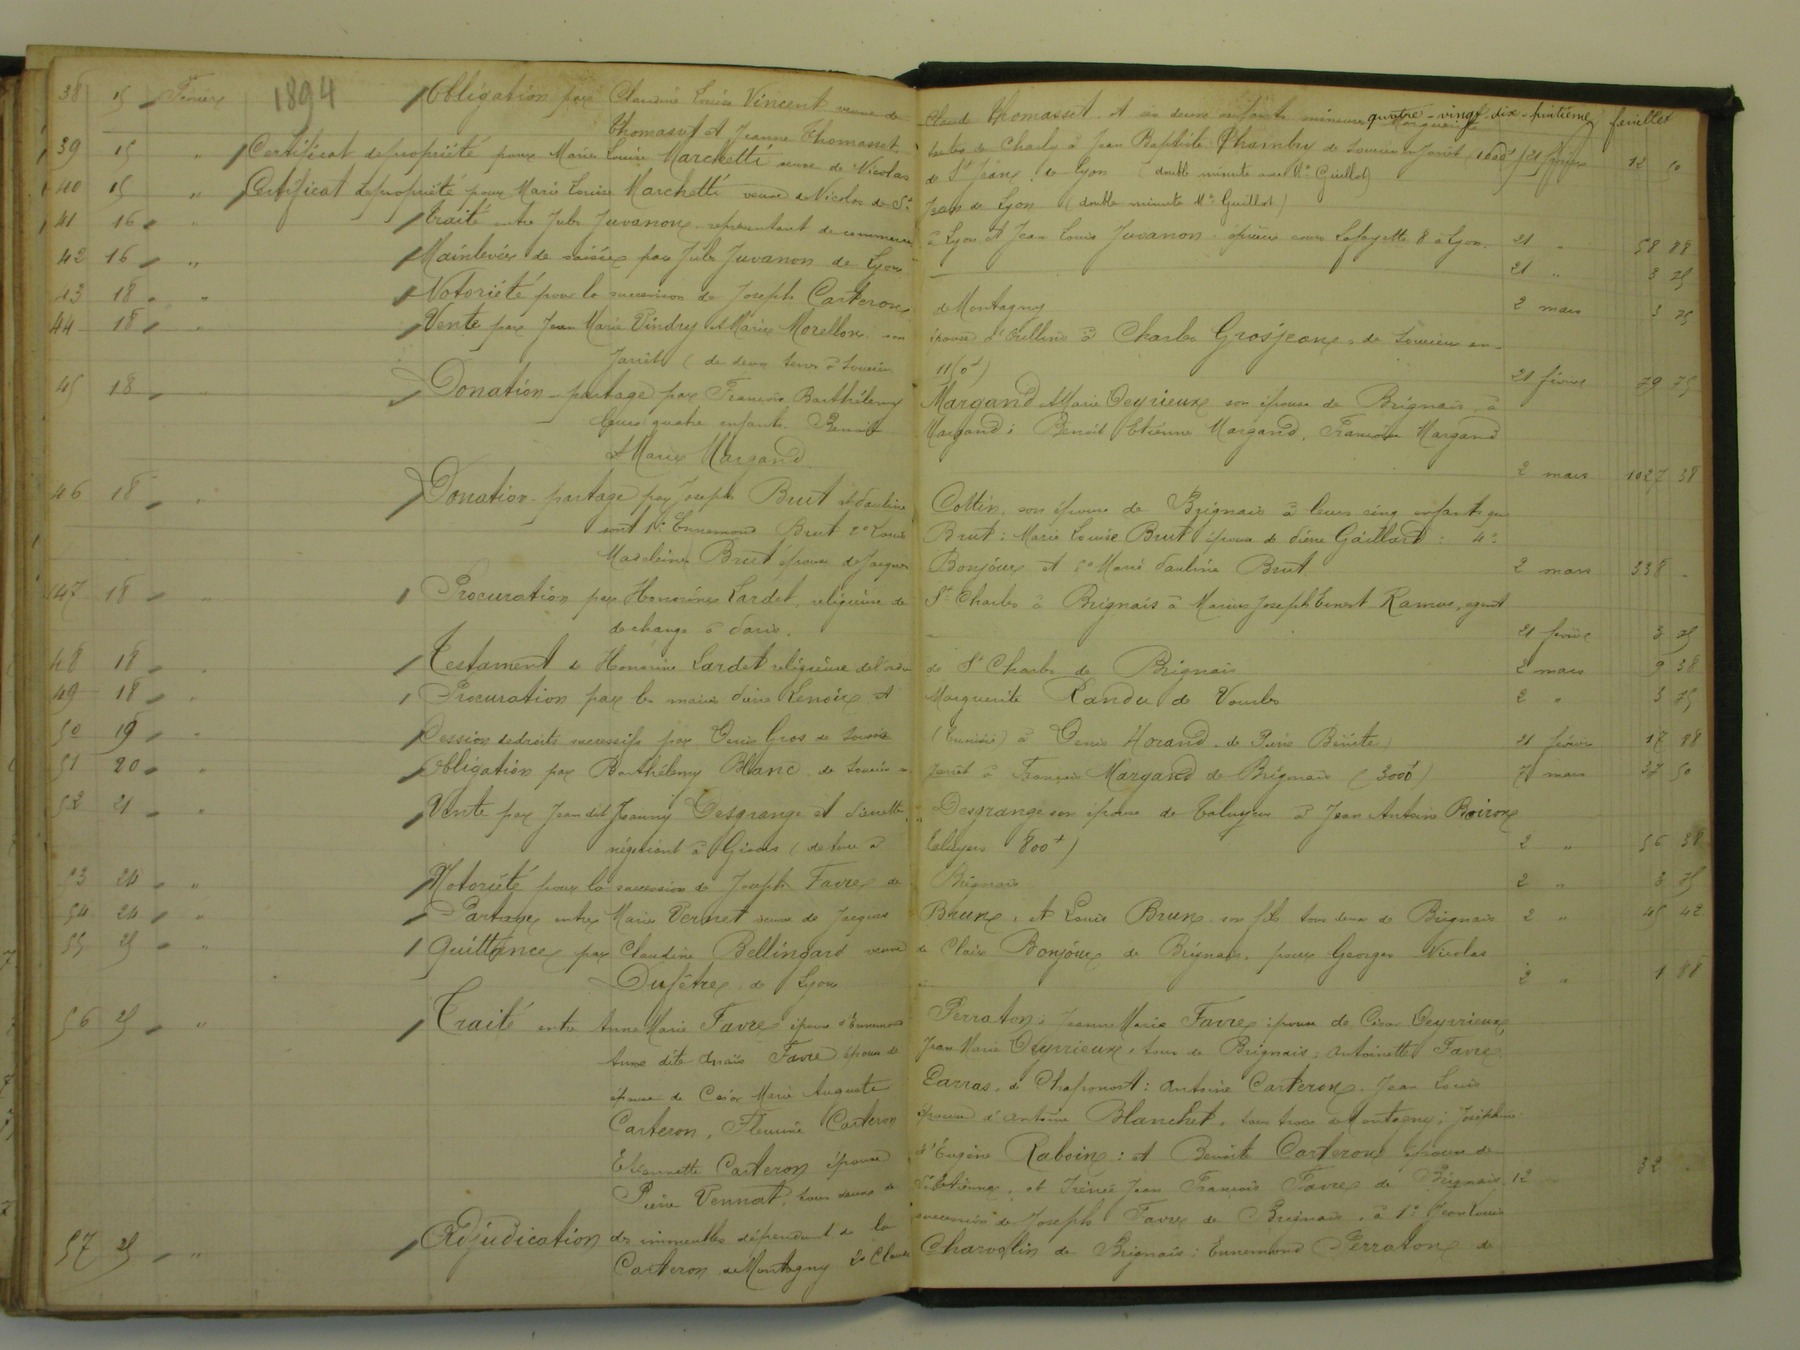 1894
quatre-vingt-dix-huitième feuillet
38 15 Février Obligation par Claudine Louise Vincent veuve de Claude Thomasset et ses deux enfants mineurs
Thomasset et Jeanne Thomasset de Charles à Jean Baptiste Chambry de Soucieu en Jarrêt 21 février 12 50
39 15 " Certificat de propriété pour Marie Louise Marchetti veuve de Nicolas de St Jean de Lyon (double minute avec Me Guillot)
40 15 " Certificat de propriété pour Marie Louise Marchetti veuve de Nicolas de St Jean de Lyon (double minute Me Guillot)
41 16 " Traité entre Jules Juvanon représentant de commerce à Lyon et Jean Louis Juvanon épicier cours Lafayette 8 à Lyon 21 " 58 88
42 16 " Mainlevée de saisie par Jules Juvanon de Lyon 21 " 3 75
43 18 " Notoriété pour la succession de Joseph Carteron de Montagny 2 mars 3 75
44 18 " Vente par Jean Marie Vindry et Marie Morellon son épouse d'Oullins à Charles Grosjean de Soucieu en
Jarrêt (de deux terres à Soucieu 21 février 79 75
45 18 " Donation-partage par François Barthélemy Margand et Marie Deyrieux son épouse de Brignais, à
leurs quatre enfants Benoit Margand ; Benoit Etienne Margand, François Margand
et Marie Margand 2 mars 1027 38
46 18 " Donation-partage par Joseph Brut et Pauline Collin, son épouse de Brignais à leurs cinq enfants qui
sont 1° Ennemond Brut 2° Louis Brut ; Marie Louise Brut épouse de Pierre Gaillard ; 4°
Madeleine Brut épouse de Jacques Bonjour et 5° Marie Pauline Brut 2 mars 338 "
47 18 " Procuration par Honorine Lardet, religieuse de St Charles à Brignais à Marius Joseph Ernest Ramos, agent
de change à Paris. 21 février 3 75
48 18 " Testament de Honorine Lardet religieuse de l'ordre de St Charles de Brignais 2 mars 9 38
49 18 " Procuration par les mariés Pierre Lenoir et Marguerite Randu de Vourles 2 " 3 75
50 19 " Cession de droits successifs par Denis Gros de Sousse (Tunisie) à Denis Horand de Pierre Bénite 21 février 18 88
51 20 " Obligation par Barthélemy Blanc de Soucieu en Jarrêt à François Margand de Brignais (3000f) 7 mars 37 50
52 21 " Vente par Jean dit Joanny Desgrange et Pierrette Desgrange son épouse de Taluyers à Jean Antoine Boiron
négociant à Givors (de terre à Taluyers 800f) 2 " 56 38
53 24 " Notoriété pour la succession de Joseph Favre de Brignais 2 " 3 75
54 24 " Partage entre Marie Vernet veuve de Jacques Brun, et Louis Brun son fils tous deux de Brignais 2 " 45 42
55 25 " Quittance par Claudine Bellingard veuve de Claude Bonjour de Brignais, pour Georges Nicolas
Dufêtre de Lyon 2 " 1 88
56 25 " Traité entre Anne Marie Favre épouse d'Ennemond Perraton ; Jeanne Marie Favre épouse de César Deyrieux,
Anne dite Anaïs Favre épouse de Jean Marie Deyrieux, tous de Brignais ; Antoinette Favre
épouse de César Marie Auguste Parras, de Chaponost ; Antoine Carteron, Jean Louis
Carteron, Fleurine Carteron épouse d'Antoine Blanchet, tous trois de Montagny ; Joséphine
Etiennette Carteron épouse d'Eugène Raboin ; et Benoite Carteron épouse de
Pierre Vennat, tous deux de St Etienne, et Irénée Jean François Favre de Brignais 12 " 32 "
57 25 " Adjudication des immeubles dépendant de la succession de Joseph Favre de Brignais, à 1° Jean Louis
Carteron de Montagny 2° Claude Charvolin de Brignais ; Ennemond Perraton de